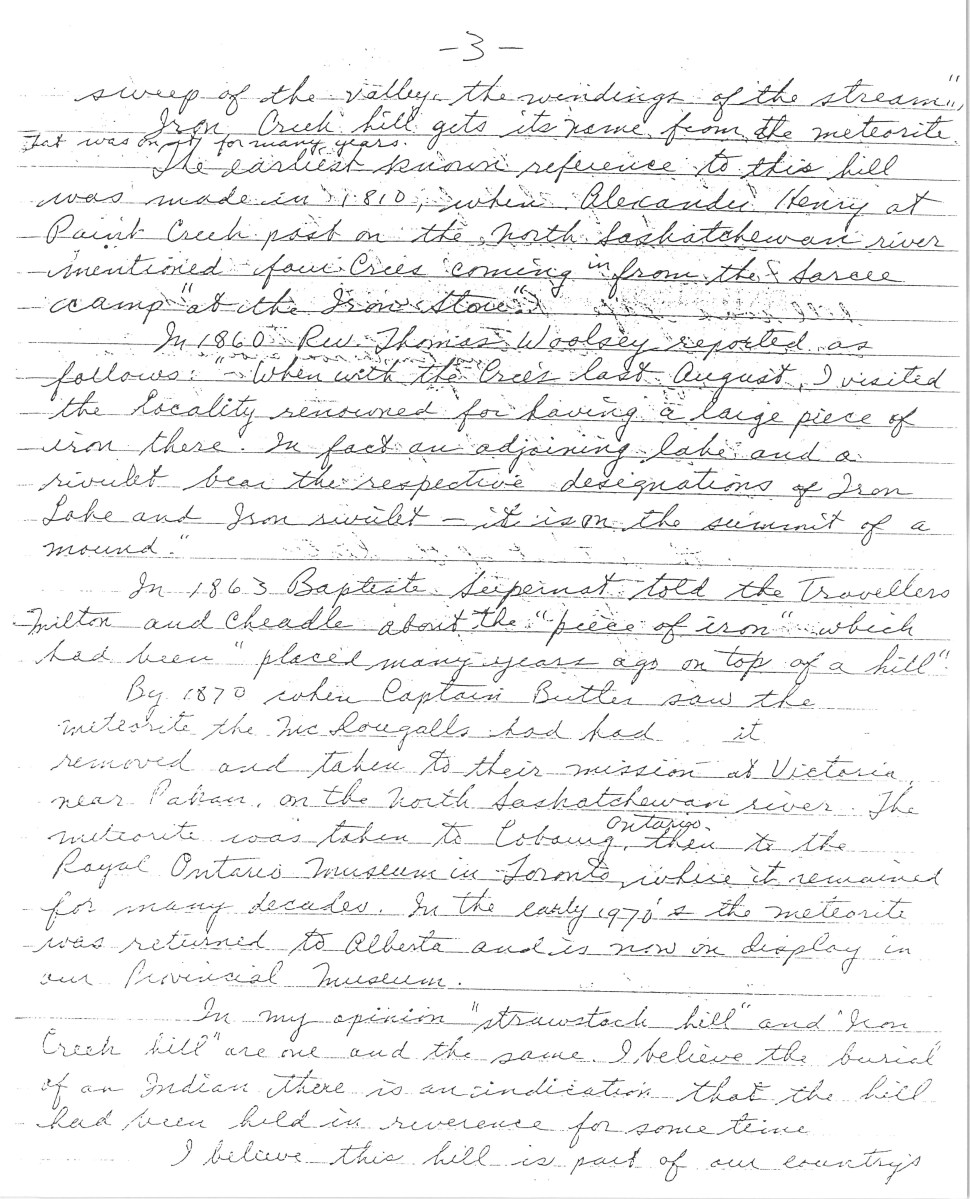 -3-
sweep of the valley. the windings of the stream",
Iron Creek hill gets its name from the meteorite
that was on it for many years.
The earliest known reference to this hill
was made in 1810, when Alexander Henry at
Paint Creek post on the North Saskatchewan river
mentioned four Crees coming in from the Sarcee
camp "at the Iron Stone".
In 1860 Rev. Thomas Woolsey reported as
follows: "- When with the Crees last August, I visited
the locality renowned for having a large piece of
iron there. In fact an adjoining lake and a
rivulet bear the respective designations of Iron
Lake and Iron rivulet - it is on the summit of a
mound."
In 1863 Baptiste Supernat told the Travellers
Milton and Cheadle about the "piece of iron" which
had been "placed many years ago on top of a hill"
By 1870 when Captain Butler saw the
meteorite the McDougalls had had it
removed and taken to their mission at Victoria,
near Pakan, on the North Saskatchewan river. The
meteorite was taken to Cobourg, Ontario. then to the
Royal Ontario Museum in Toronto, where it remained
for many decades. In the early 1970's the meteorite
was returned to Alberta and is now on display in
our Provincial Museum.
In my opinion "strawstack hill" and "Iron
Creek hill" are one and the same. I believe the burial
of an Indian there is an indication that the hill
had been held in reverence for some time
I believe this hill is part of our country's